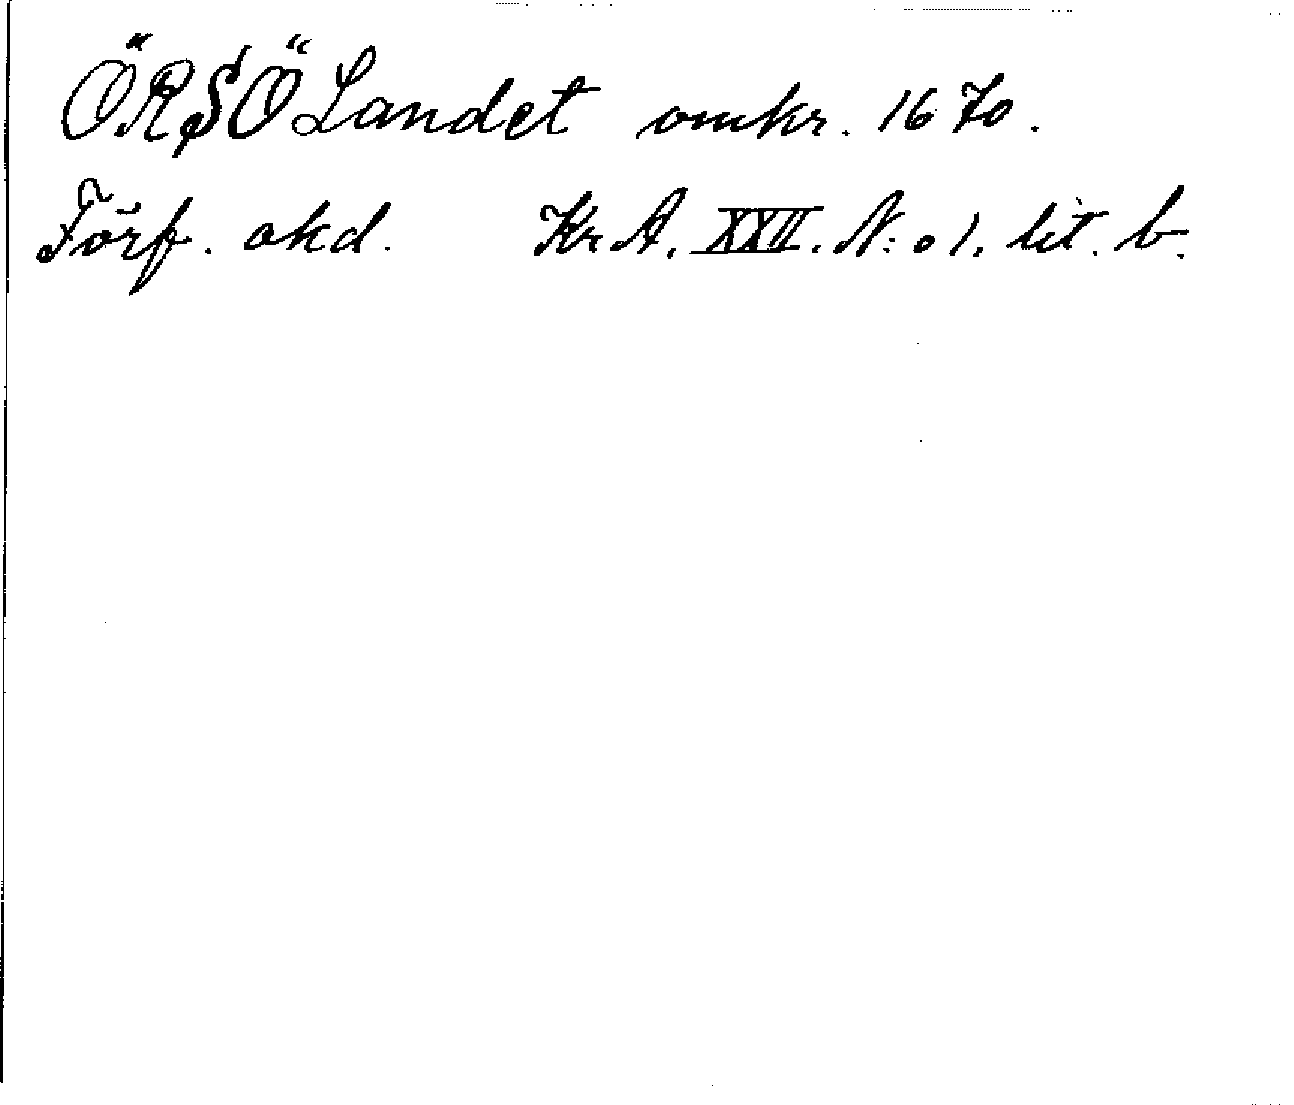 ÖRSÖLandet omkr. 1670.
Förf. okd. Kr A. XXII. N:o 1. lit. b.